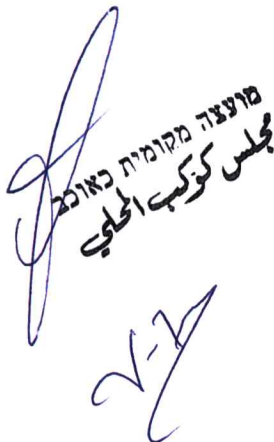 מועצה מקומית כאוכב
مجلس كوكب المحلي